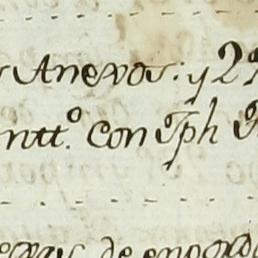 Anexos: y 2
ntt.º con Jph
de